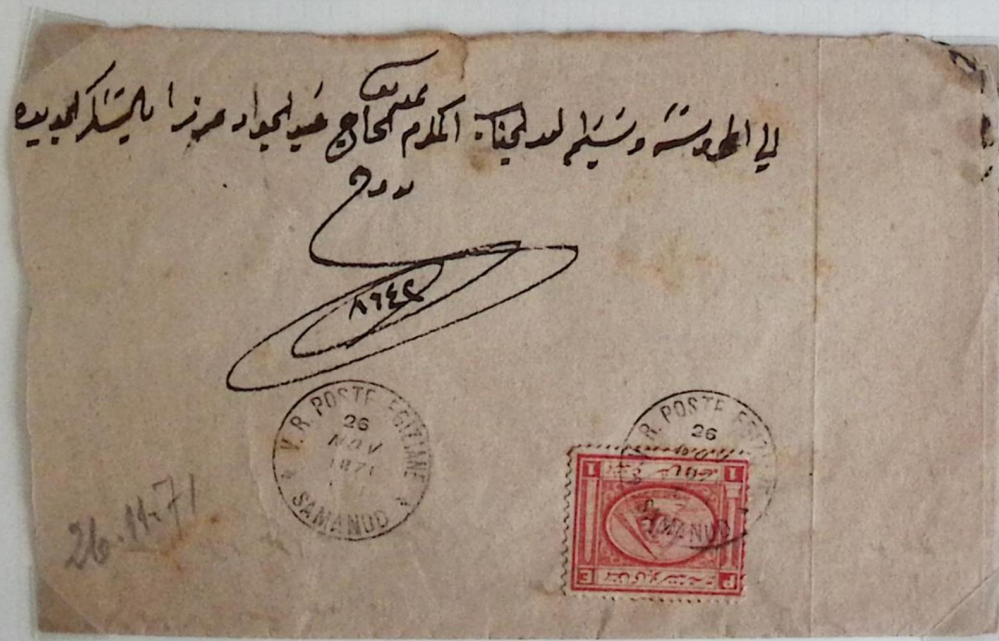 الي المحروسة وتسلم ليد الجناب المكرم الحاج عبد الجواد الجديده
٨٦٤٢
V. R. POSTE EGIZIANE
26
NOV
1871
SAMANUD
V. R. POSTE EGIZIANE
26
NOV
SAMANUD
1 1
P E
26.11.71